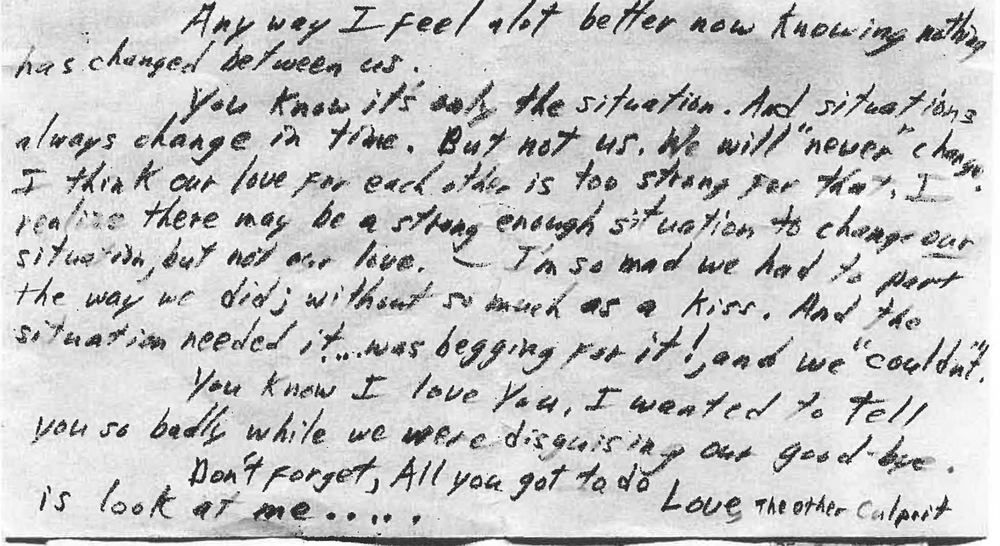 Any way I feel alot better now knowing nothing
has changed between us.
You know it's only the situation. And situations
always change in time. But not us. We will "never" change.
I think our love for each other is too strong for that. I
realize there may be a strong enough situation to change our
situation, but not our love. — I'm so mad we had to part
the way we did; without so much as a kiss. And the
situation needed it....was begging for it!, and we "couldn't".
You know I love you. I wanted to tell
you so badly while we were disguising our good-bye.
Don't forget, All you got to do
is look at me.....
Love, The Other Culprit